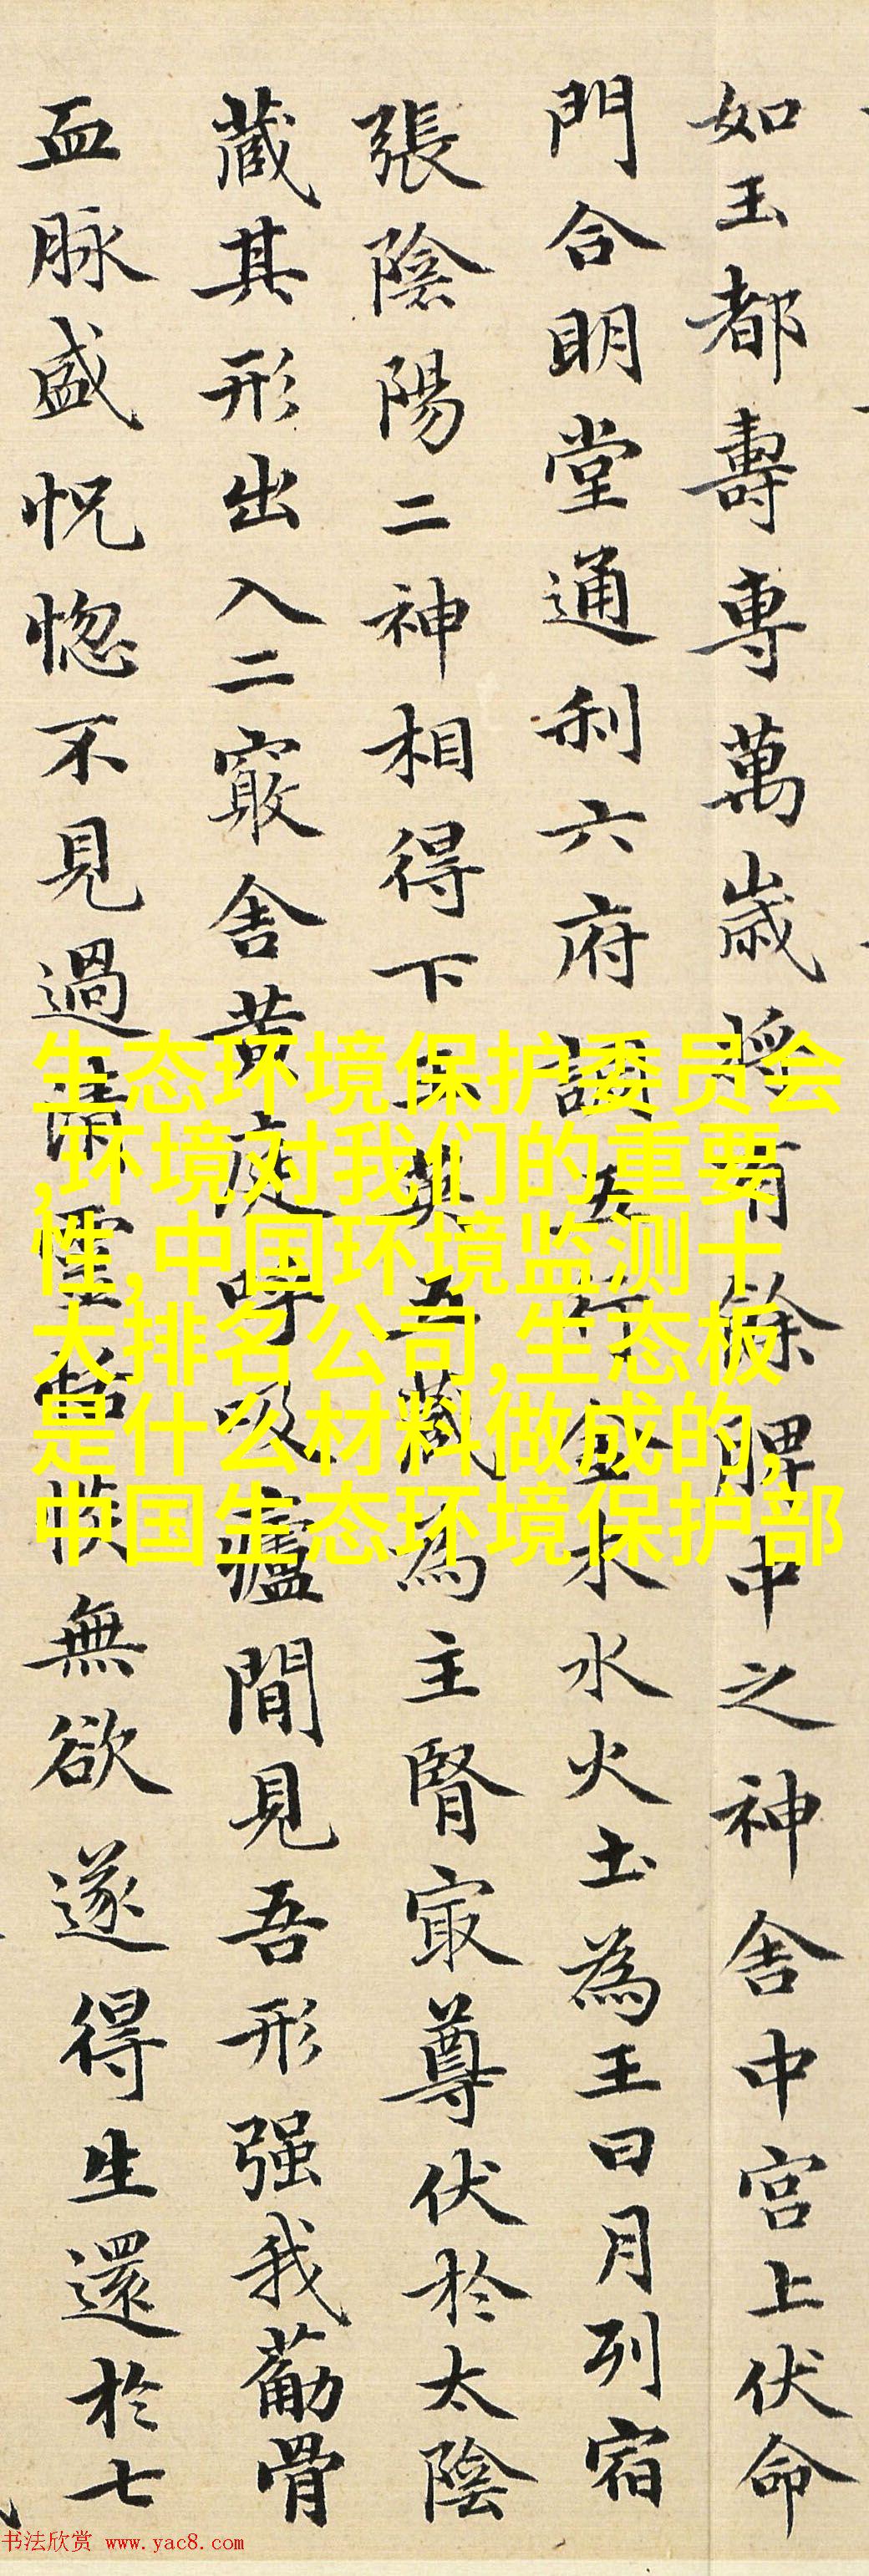 如玉都壽專萬歳將有餘脾中之神舍中宮上伏命
門合明堂通利六府調五行金木水火土為王日月列宿
張陰陽二神相得下玉英五藏為主腎㝡尊伏於太陰
藏其形出入二竅舍黄庭呼吸廬間見吾形强我葋骨
血脉盛怳惚不見過清靈恬惔無欲遂得生還於七
生态环境保护委员会
,环境对我们的重要
性,中国环境监测十
大排名公司,生态板
是什么材料做成的,
中国生态环境保护部
书法欣赏 www.yac8.com